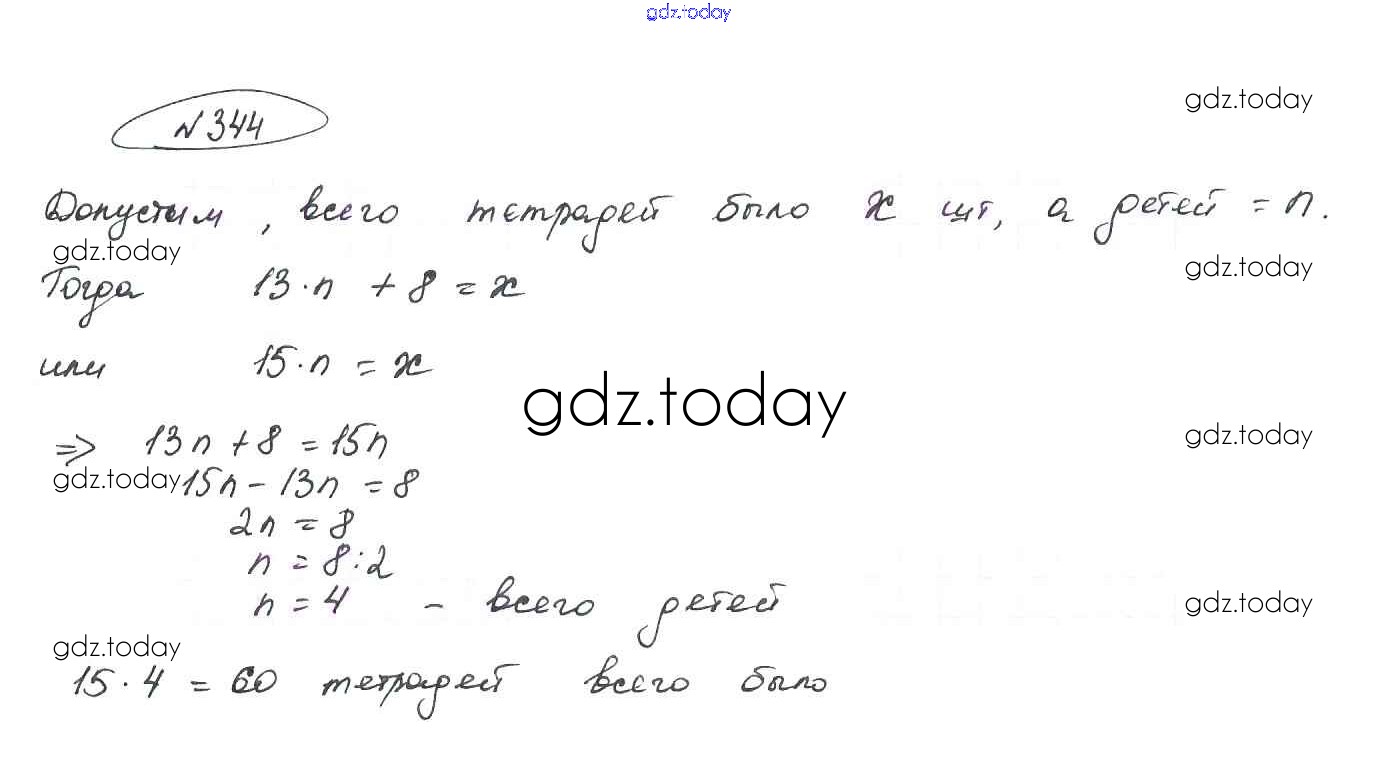 gdz.today
gdz.today
№ 344
Допустим, всего тетрадей было x шт, а детей = n.
gdz.today
gdz.today
Тогда 13·n + 8 = x
или 15·n = x
gdz.today
⇒ 13n + 8 = 15n
gdz.today
gdz.today
15n - 13n = 8
2n = 8
n = 8:2
n = 4 - всего детей
gdz.today
gdz.today
15·4 = 60 тетрадей всего было